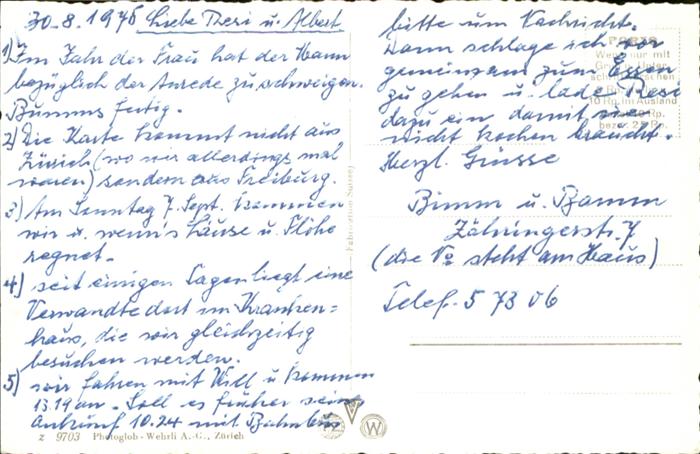 30.8.1975 Liebe Resi u. Albert
1) Im Jahr der Frau hat der Mann
bezüglich der Anrede zu schweigen.
Bumms fertig.
2) Die Karte kommt nicht aus
Zürich (wo wir allerdings mal
waren) sondern aus Freiburg.
3) Am Sonntag 7. Sept. kommen
wir u. wenn's Läuse u. Flöhe
regnet.
4) seit einigen Tagen liegt eine
Verwandte dort im Kranken=
haus, die wir gleichzeitig
besuchen werden.
5) wir fahren mit Will u. kommen
13.19 an. Soll es früher sein
Ankunft 10.24 mit Bahnbus
bitte um Nachricht.
Dann schlage ich vor
gemeinsam zum Essen
zu gehen u. lade Resi
dazu ein damit sie
nicht kochen braucht.
Herzl. Grüsse
Bimm u. Bamm
Zähringerstr. 7
(die No steht am Haus)
Telef. 5 73 06
PORTO
Wenn nur mit
10 Rp. im Ausland
Fabrication Suisse
Z 9703 Photoglob-Wehrli A.-G., Zürich